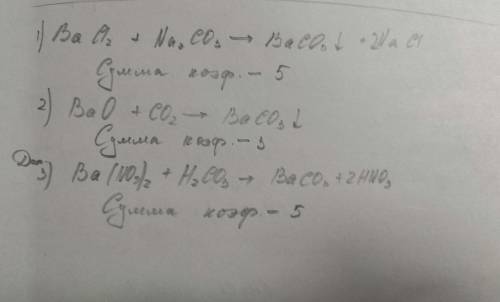 1) BaCl₂ + Na₂CO₃ → BaCO₃↓ + 2NaCl
Сумма коэф. - 5
2) BaO + CO₂ → BaCO₃↓
Сумма коэф. - 3
3) Ba(NO₃)₂ + H₂CO₃ → BaCO₃ + 2HNO₃
Сумма коэф. - 5